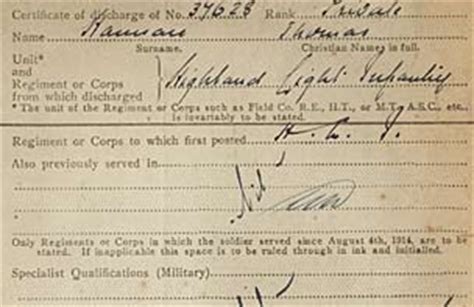 Certificate of discharge of No. 37628 Rank Private
Name Thomas
Surname. Christian Names in full.
Unit*
and
Regiment or Corps Highland Light Infantry
from which discharged
* The unit of the Regiment or Corps such as Field Co. R.E., H.T., or M.T., A.S.C., etc.,
is invariably to be stated.
Regiment or Corps to which first posted H. L. I.
Also previously served in
Nil
Only Regiments or Corps in which the soldier served since August 4th, 1914, are to be
stated. If inapplicable this space is to be ruled through in ink and initialled.
Specialist Qualifications (Military)